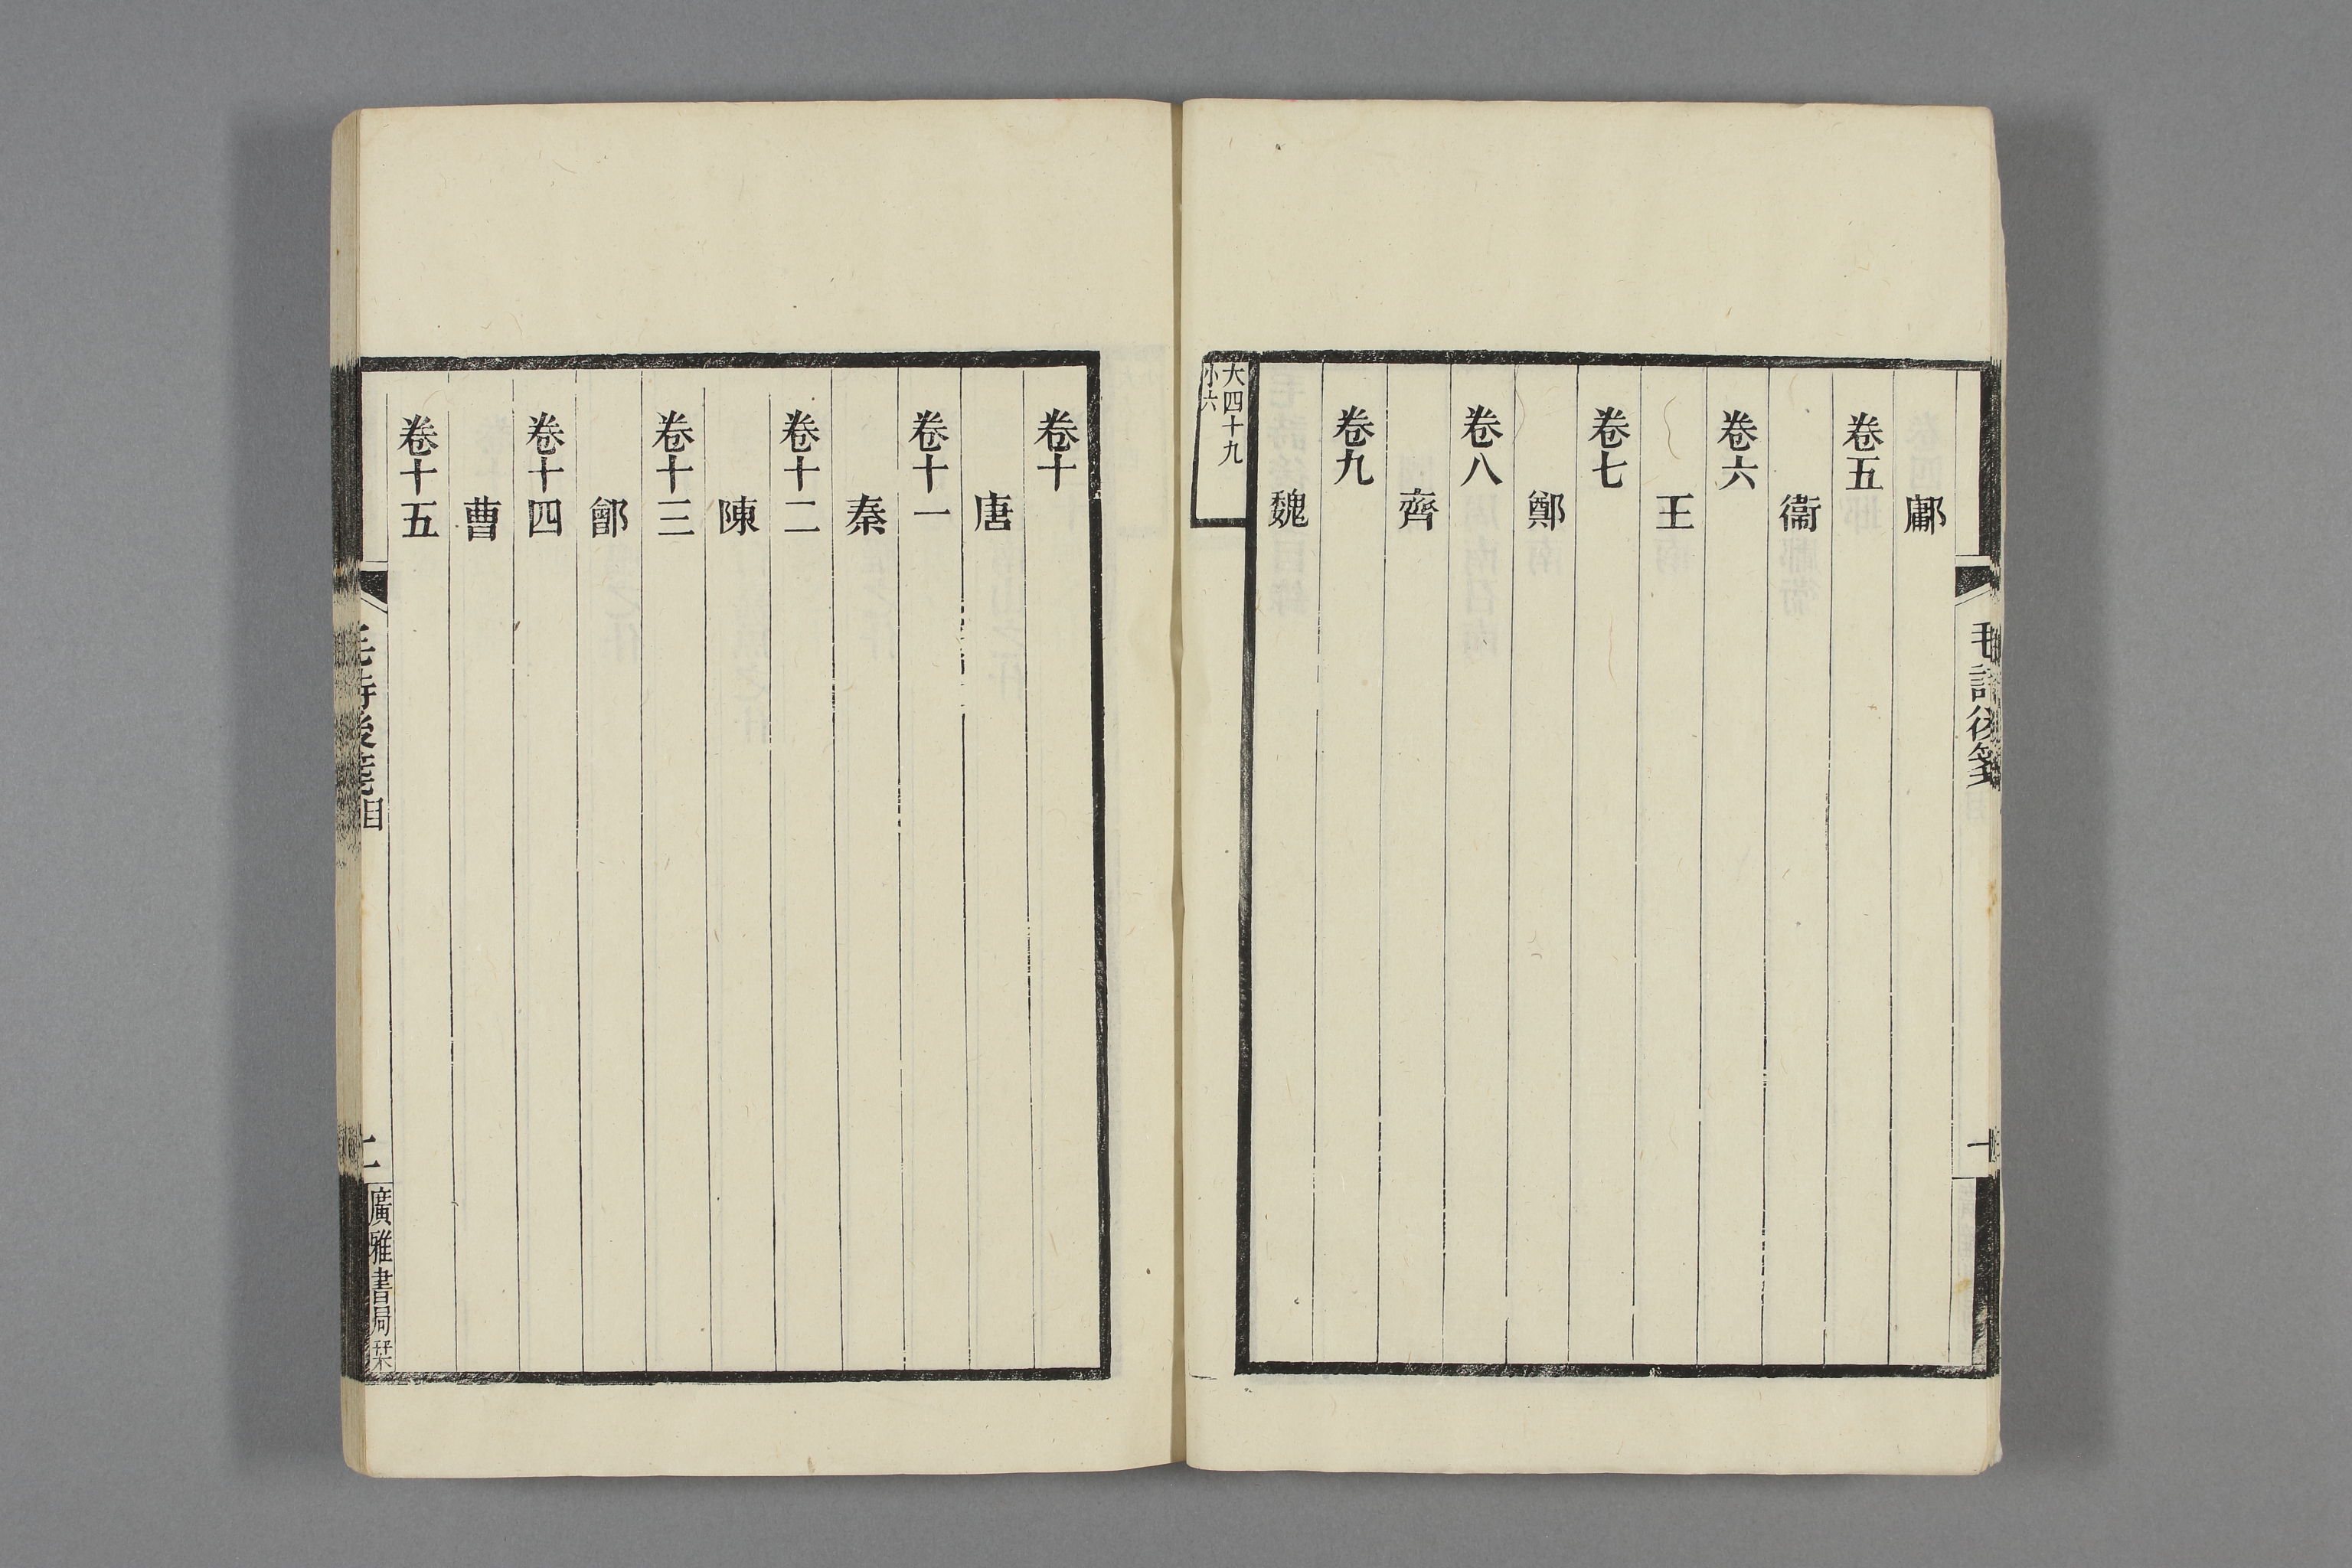 鄘
卷五
衞
卷六
王
卷七
鄭
卷八
齊
卷九
魏
大四十九
小六
毛詩後箋
卷十
唐
卷十一
秦
卷十二
陳
卷十三
鄶
卷十四
曹
卷十五
毛詩後箋目
廣雅書局栞